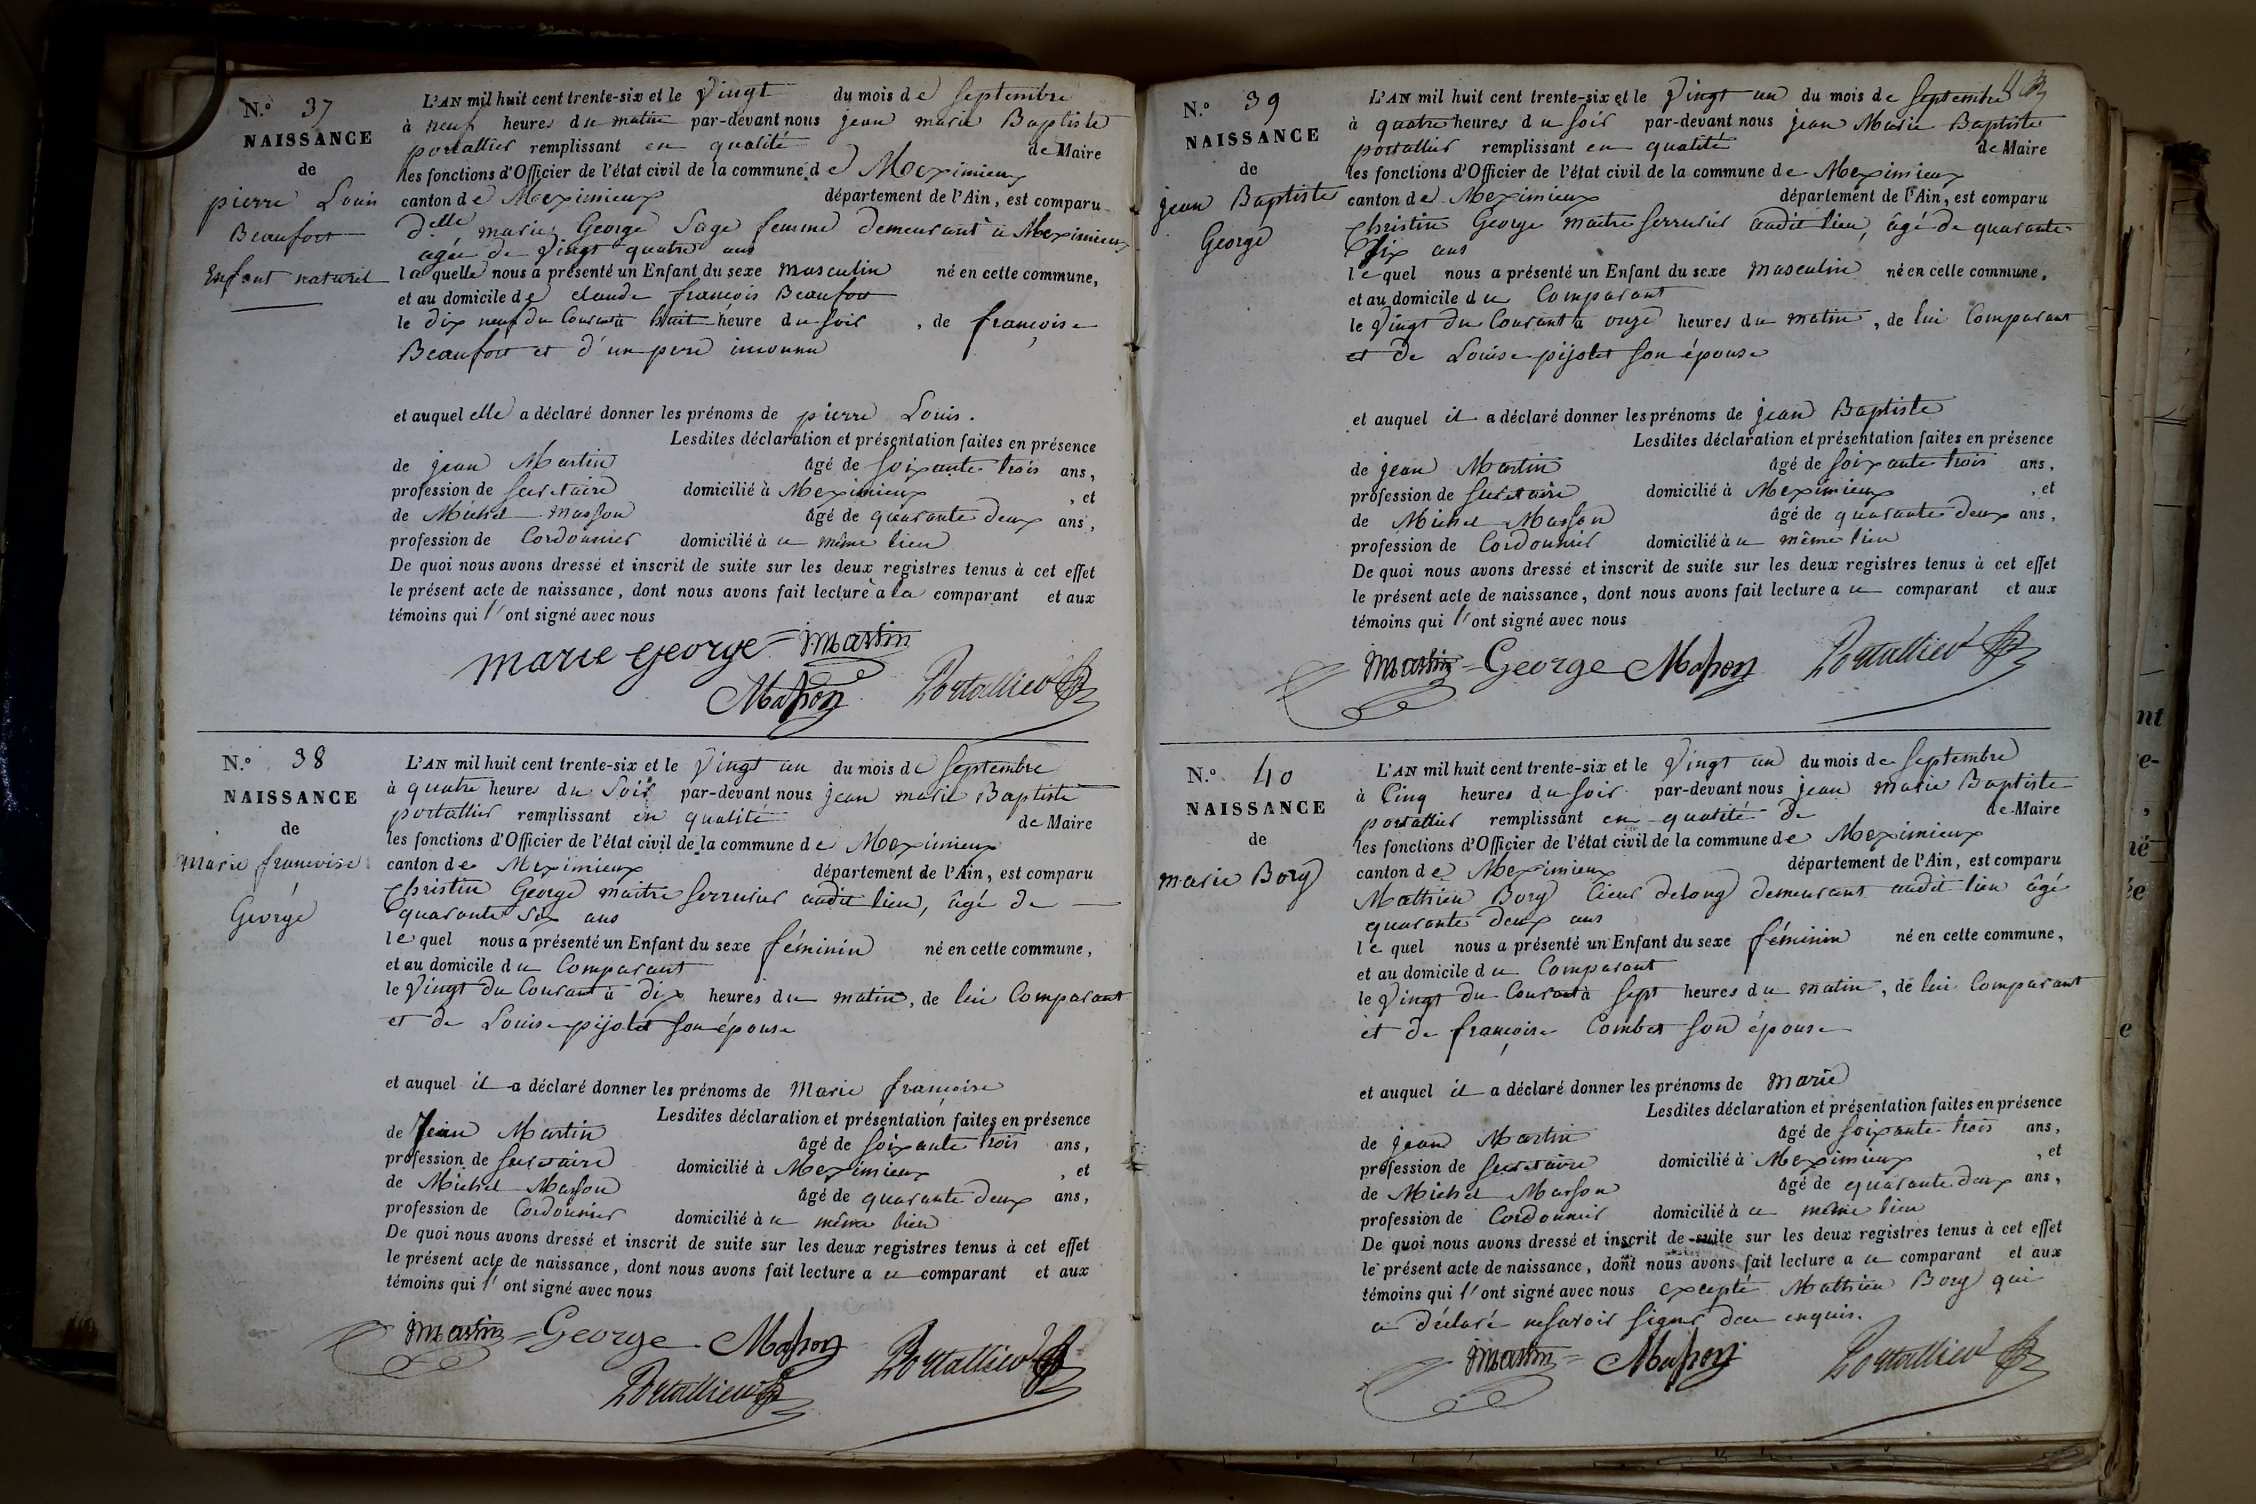 N.º 37
NAISSANCE
de
pierre Louis
Beaufort
Enfant naturel
L'AN mil huit cent trente-six et le Vingt du mois de Septembre
à neuf heures du matin par-devant nous jean marie Baptiste
portallier remplissant en qualité de Maire
les fonctions d'Officier de l'état civil de la commune de Meximieux
canton de Meximieux département de l'Ain, est comparu
Delle marie George Sage femme demeurant à Meximieux
agée de Vingt quatre ans
laquelle nous a présenté un Enfant du sexe masculin né en cette commune,
et au domicile de claude françois Beaufort
le dix neuf du Courant à huit heure du soir, de françoise
Beaufort et d'un pere inconnu
et auquel elle a déclaré donner les prénoms de pierre Louis.
Lesdites déclaration et présentation faites en présence
de jean Martin âgé de soixante trois ans,
profession de secretaire domicilié à Meximieux, et
de Michel masson âgé de quarante deux ans,
profession de Cordonnier domicilié à u même lieu
De quoi nous avons dressé et inscrit de suite sur les deux registres tenus à cet effet
le présent acte de naissance, dont nous avons fait lecture à la comparant et aux
témoins qui l'ont signé avec nous
marie george Martin
Masson Portallier
N.º 38
NAISSANCE
de
Marie francoise
George
L'AN mil huit cent trente-six et le Vingt un du mois de Septembre
à quatre heures du Soir par-devant nous jean marie Baptiste
portallier remplissant en qualité de Maire
les fonctions d'Officier de l'état civil de la commune de Meximieux
canton de Meximieux département de l'Ain, est comparu
Christin George maitre serrurier audit lieu, âgé de
quarante six ans
lequel nous a présenté un Enfant du sexe féminin né en cette commune,
et au domicile du Comparant
le Vingt du Courant à dix heures du matin, de lui Comparant
et de Louise pijolet son épouse
et auquel il a déclaré donner les prénoms de Marie françoise
Lesdites déclaration et présentation faites en présence
de Jean Martin âgé de soixante trois ans,
profession de secretaire domicilié à Meximieux, et
de Michel Masson âgé de quarante deux ans,
profession de Cordonnier domicilié à u même lieu
De quoi nous avons dressé et inscrit de suite sur les deux registres tenus à cet effet
le présent acte de naissance, dont nous avons fait lecture a u comparant et aux
témoins qui l'ont signé avec nous
Martin George Masson Portallier
Portallier
N.º 39
NAISSANCE
de
jean Baptiste
George
L'AN mil huit cent trente-six et le Vingt un du mois de Septembre
à quatre heures du soir par-devant nous jean Marie Baptiste
portallier remplissant en qualité de Maire
les fonctions d'Officier de l'état civil de la commune de Meximieux
canton de Meximieux département de l'Ain, est comparu
Christin George maitre serrurier audit lieu, âgé de quarante
Six ans
lequel nous a présenté un Enfant du sexe masculin né en cette commune,
et au domicile du Comparant
le Vingt du Courant à onze heures du matin, de lui Comparant
et de Louise pijolet son épouse
et auquel il a déclaré donner les prénoms de jean Baptiste
Lesdites déclaration et présentation faites en présence
de jean Martin âgé de soixante trois ans,
profession de secretaire domicilié à Meximieux, et
de Michel Masson âgé de quarante deux ans,
profession de Cordonnier domicilié à u même lieu
De quoi nous avons dressé et inscrit de suite sur les deux registres tenus à cet effet
le présent acte de naissance, dont nous avons fait lecture a u comparant et aux
témoins qui l'ont signé avec nous
Martin George Masson Portallier
N.º 40
NAISSANCE
de
marie Bory
L'AN mil huit cent trente-six et le Vingt un du mois de Septembre
à Cinq heures du soir par-devant nous jean marie Baptiste
portallier remplissant en qualité de de Maire
les fonctions d'Officier de l'état civil de la commune de Meximieux
canton de Meximieux département de l'Ain, est comparu
Mathieu Bory Cieur delong demeurant audit lieu âgé
quarante deux ans
lequel nous a présenté un Enfant du sexe féminin né en cette commune,
et au domicile du Comparant
le Vingt du Courant à sept heures du matin, de lui Comparant
et de françoise Combet son épouse
et auquel il a déclaré donner les prénoms de marie
Lesdites déclaration et présentation faites en présence
de jean Martin âgé de soixante trois ans,
profession de secretaire domicilié à Meximieux, et
de Michel Masson âgé de quarante deux ans,
profession de Cordonnier domicilié à u même lieu
De quoi nous avons dressé et inscrit de suite sur les deux registres tenus à cet effet
le présent acte de naissance, dont nous avons fait lecture a u comparant et aux
témoins qui l'ont signé avec nous excepté Mathieu Bory qui
a déclaré ne savoir signer deu enquis.
Martin Masson Portallier